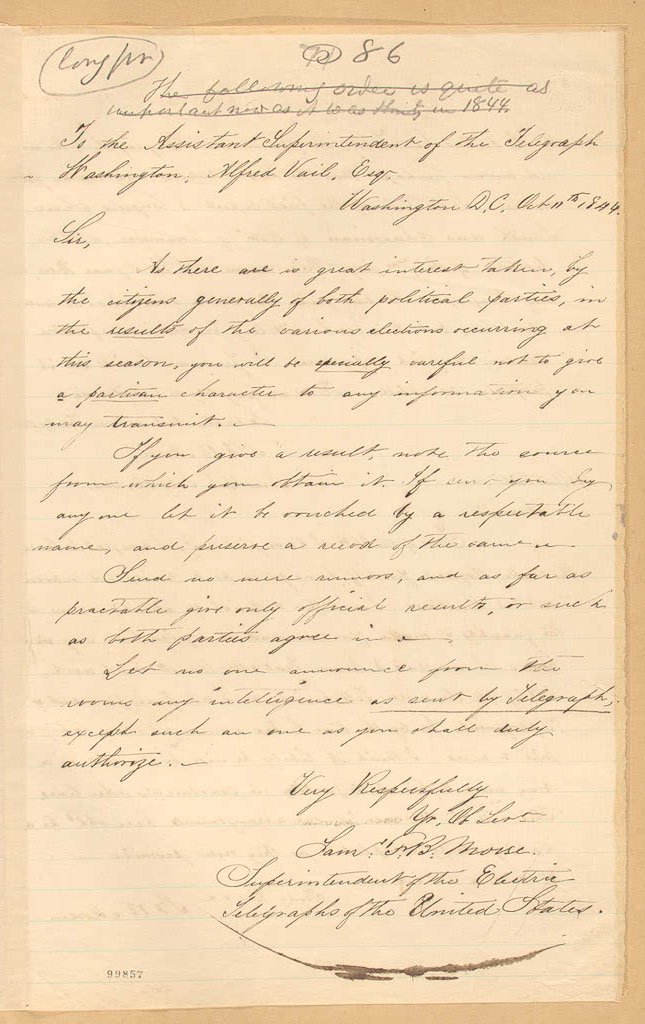 Long pr
86
The following order is quite as
important now as it was then, in 1844.
To the Assistant Superintendent of the Telegraph
Washington, Alfred Vail, Esqr.
Washington D.C. Oct 11th 1844.
Sir,
As there are is great interest taken, by
the citizens generally of both political parties, in
the results of the various elections occurring at
this season, you will be specially careful not to give
a partisan character to any information you
may transmit. —
If you give a result, note the source
from which you obtain it. If sent you by
any one let it be vouched by a respectable
name, and preserve a recod of the same —
Send no mere rumors, and as far as
practable give only official results, or such
as both parties agree in —
Let no one announce from the
rooms any "intelligence as sent by Telegraph,
except such an one as you shall duly
authorize. —
Very Respectfully
Yr. Ob Servt
Saml. F. B. Morse.
Superintendent of the Electric
Telegraphs of the United States.
99857